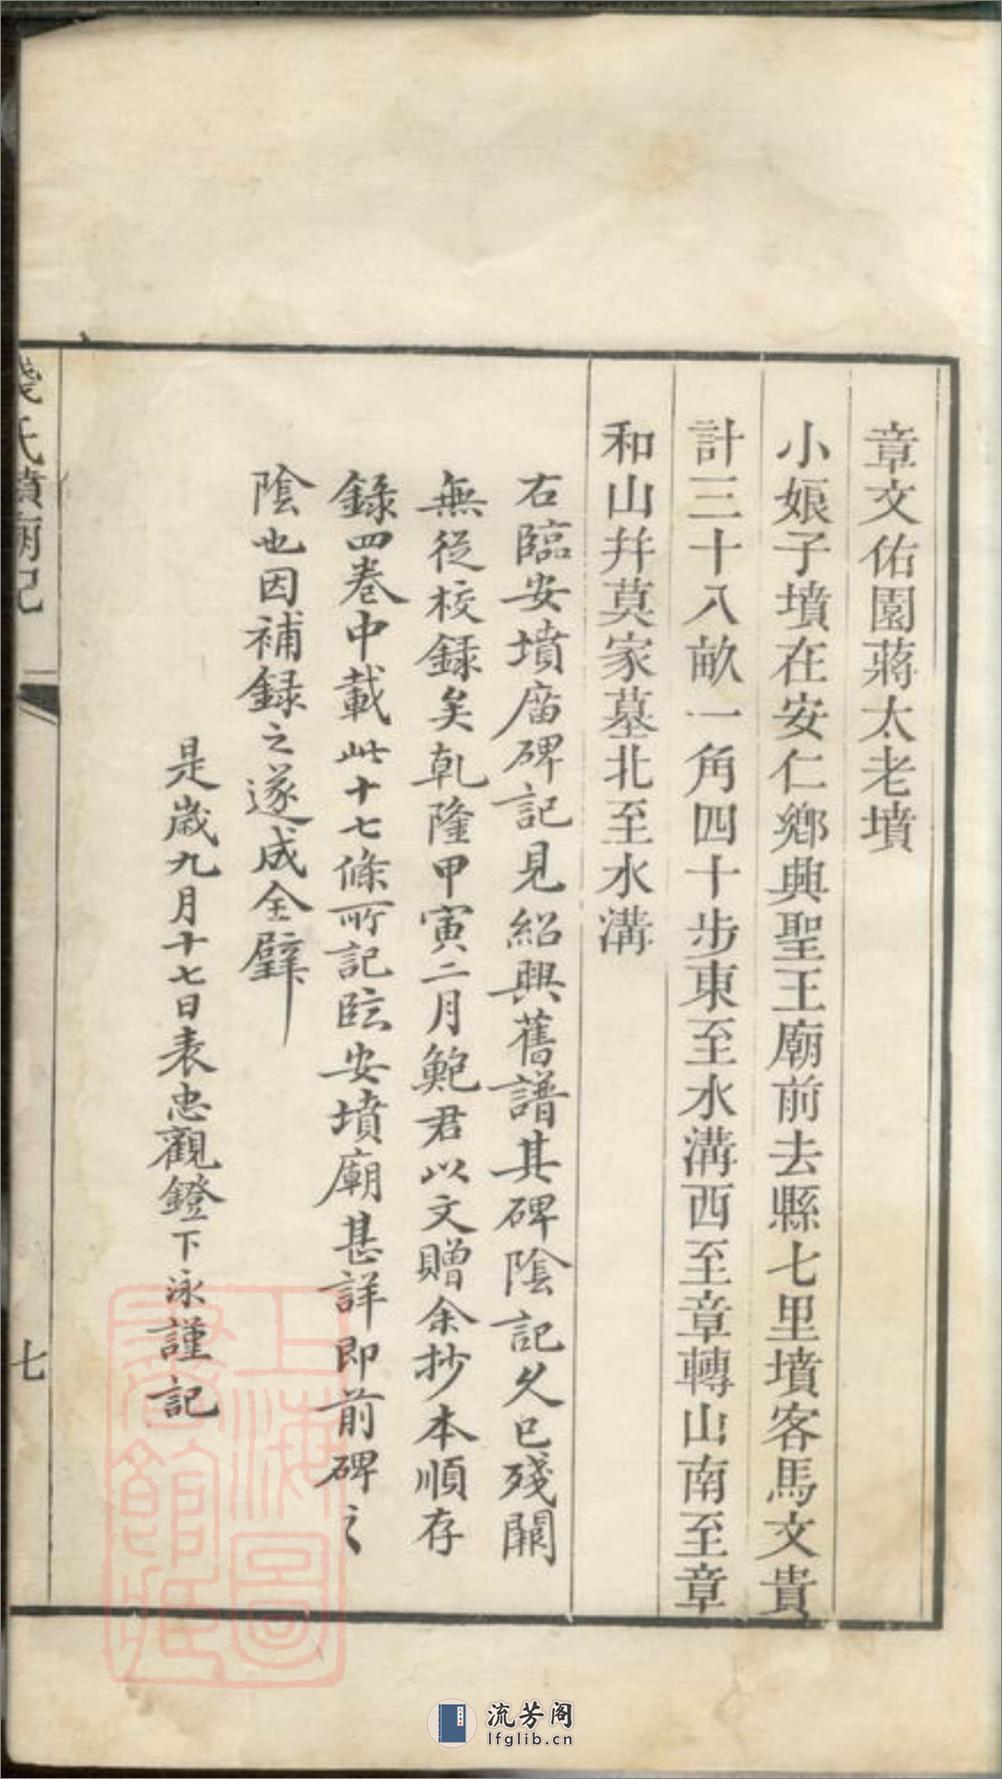 章文佑園蔣太老墳
小娘子墳在安仁鄉興聖王廟前去縣七里墳客馬文貴
計三十八畝一角四十步東至水溝西至章轉山南至章
和山幷莫家墓北至水溝
右臨安墳庿碑記見紹興舊譜其碑陰記久已殘闕
無從校錄矣乾隆甲寅二月鮑君以文贈余抄本順存
錄四卷中載此十七條所記臨安墳廟甚詳即前碑之
陰也因補録之遂成全璧
是歲九月十七日表忠觀鐙下泳謹記
錢氏墳廟記
七
上海圖書館藏
流芳阁
lfglib.cn